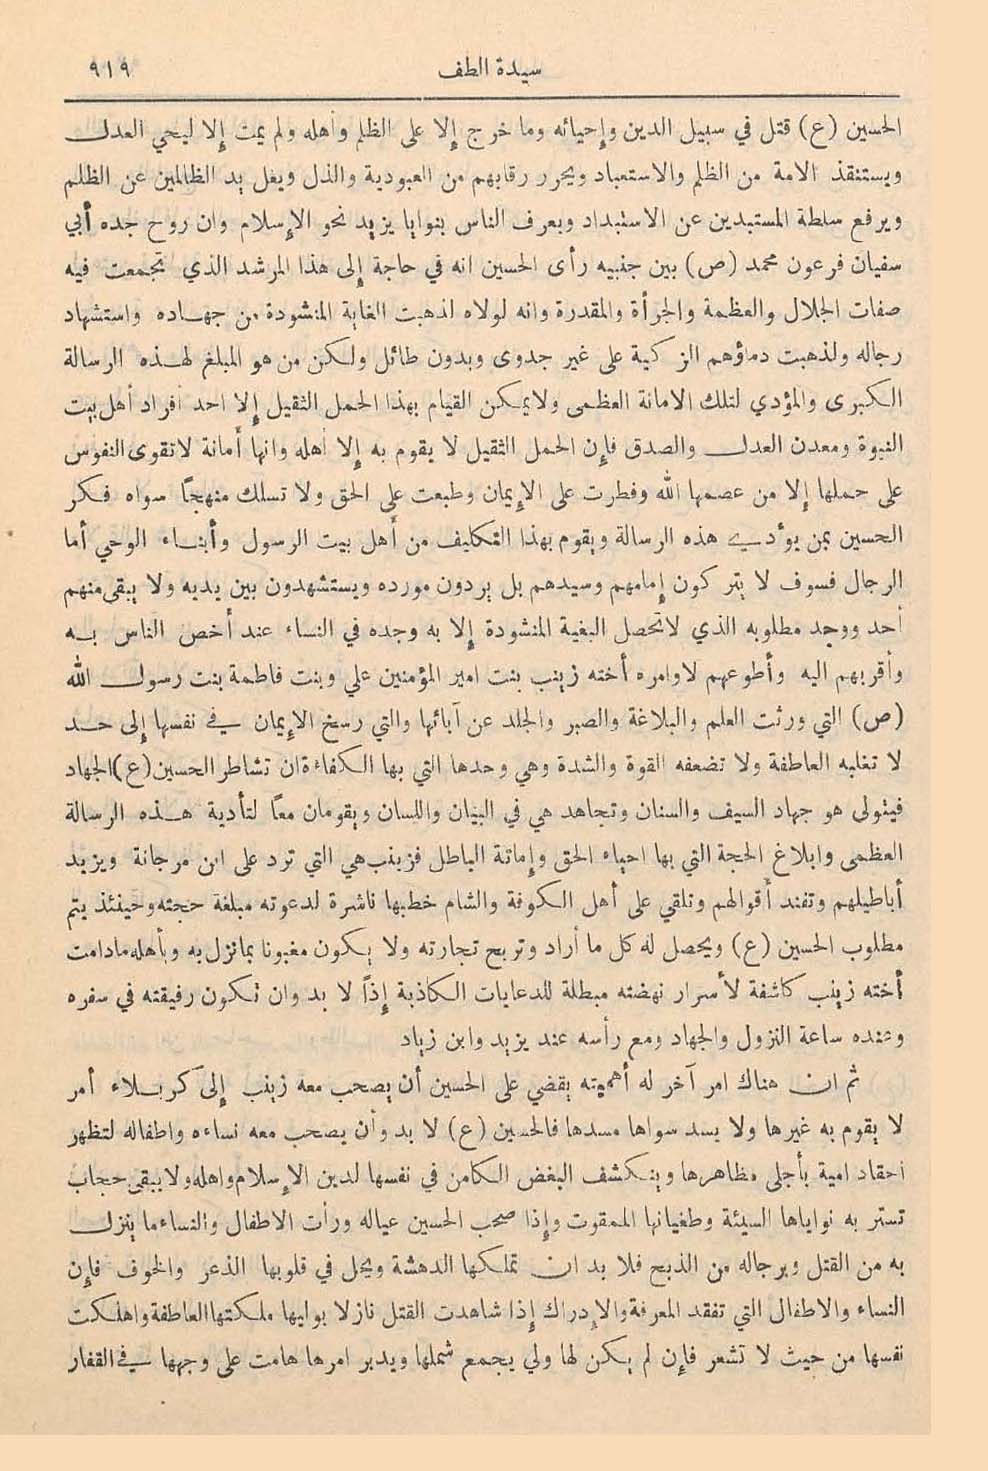 سيدة الطف ٩١٩
الحسين (ع) قتل في سبيل الدين وإحيائه وما خرج إلا على الظلم وأهله ولم يمت إلا ليحي العدل
ويستنقذ الامة من الظلم والاستعباد ويحرر رقابهم من العبودية والذل ويغل يد الظالمين عن الظلم
ويرفع سلطة المستبدين عن الاستبداد ويعرف الناس بنوايا يزيد نحو الإسلام وان روح جده أبي
سفيان فرعون محمد (ص) بين جنبيه رأى الحسين انه في حاجة إلى هذا المرشد الذي تجمعت فيه
صفات الجلال والعظمة والجرأة والمقدرة وانه لولاه لذهبت الغاية المنشودة من جهاده واستشهاد
رجاله ولذهبت دماؤهم الزكية على غير جدوى وبدون طائل ولكن من هو المبلغ لهذه الرسالة
الكبرى والمؤدي لتلك الامانة العظمى ولايمكن القيام بهذا الحمل الثقيل إلا احد افراد أهل بيت
النبوة ومعدن العدل والصدق فإن الحمل الثقيل لا يقوم به إلا أهله وانها أمانة لاتقوى النفوس
على حملها إلا من عصمها الله وفطرت على الإيمان وطبعت على الحق ولا تسلك منهجاً سواه فكر
الحسين بمن يؤدي هذه الرسالة ويقوم بهذا التكليف من أهل بيت الرسول وأبناء الوحي أما
الرجال فسوف لا يتركون إمامهم وسيدهم بل يردون مورده ويستشهدون بين يديه ولا يبقى منهم
أحد ووجد مطلوبه الذي لاتحصل البغية المنشودة إلا به وجده في النساء عند أخص الناس به
وأقربهم اليه وأطوعهم لاوامره أخته زينب بنت امير المؤمنين علي وبنت فاطمة بنت رسول الله
(ص) التي ورثت العلم والبلاغة والصبر والجلد عن آبائها والتي رسخ الإيمان في نفسها إلى حد
لا تغلبه العاطفة ولا تضعفه القوة والشدة وهي وحدها التي بها الكفاءة ان تشاطر الحسين (ع) الجهاد
فيتولى هو جهاد السيف والسنان وتجاهد هي في البيان واللسان ويقومان معاً لتأدية هذه الرسالة
العظمى وابلاغ الحجة التي بها احياء الحق وإماتة الباطل فزينب هي التي ترد على ابن مرجانة ويزيد
أباطيلهم وتفند أقوالهم وتلقي على أهل الكوفة والشام خطبها ناشرة لدعوته مبلغة حجته وحينئذ يتم
مطلوب الحسين (ع) ويحصل له كل ما أراد وتربح تجارته ولا يكون مغبونا بمانزل به وبأهله مادامت
أخته زينب كاشفة لأسرار نهضته مبطلة للدعايات الكاذبة إذاً لا بد وان تكون رفيقته في سفره
وعنده ساعة النزول والجهاد ومع رأسه عند يزيد وابن زياد
ثم ان هناك امر آخر له أهميته يقضي على الحسين أن يصحب معه زينب إلى كربلاء أمر
لا يقوم به غيرها ولا يسد سواها مسدها فالحسين (ع) لا بد وأن يصحب معه نساءه واطفاله لتظهر
احقاد امية بأجلى مظاهرها وينكشف البغض الكامن في نفسها لدين الإسلام واهله ولا يبقى حجاب
تستر به نواياها السيئة وطغيانها الممقوت وإذا صحب الحسين عياله ورأت الاطفال والنساء ما ينزل
به من القتل وبرجاله من الذبح فلا بد ان تملكها الدهشة ويحل في قلوبها الذعر والخوف فإن
النساء والاطفال التي تفقد المعرفة والإدراك إذا شاهدت القتل نازلا بوليها ملكتها العاطفة واهلكت
نفسها من حيث لا تشعر فإن لم يكن لها ولي يجمع شملها ويدبر امرها هامت على وجهها في القفار